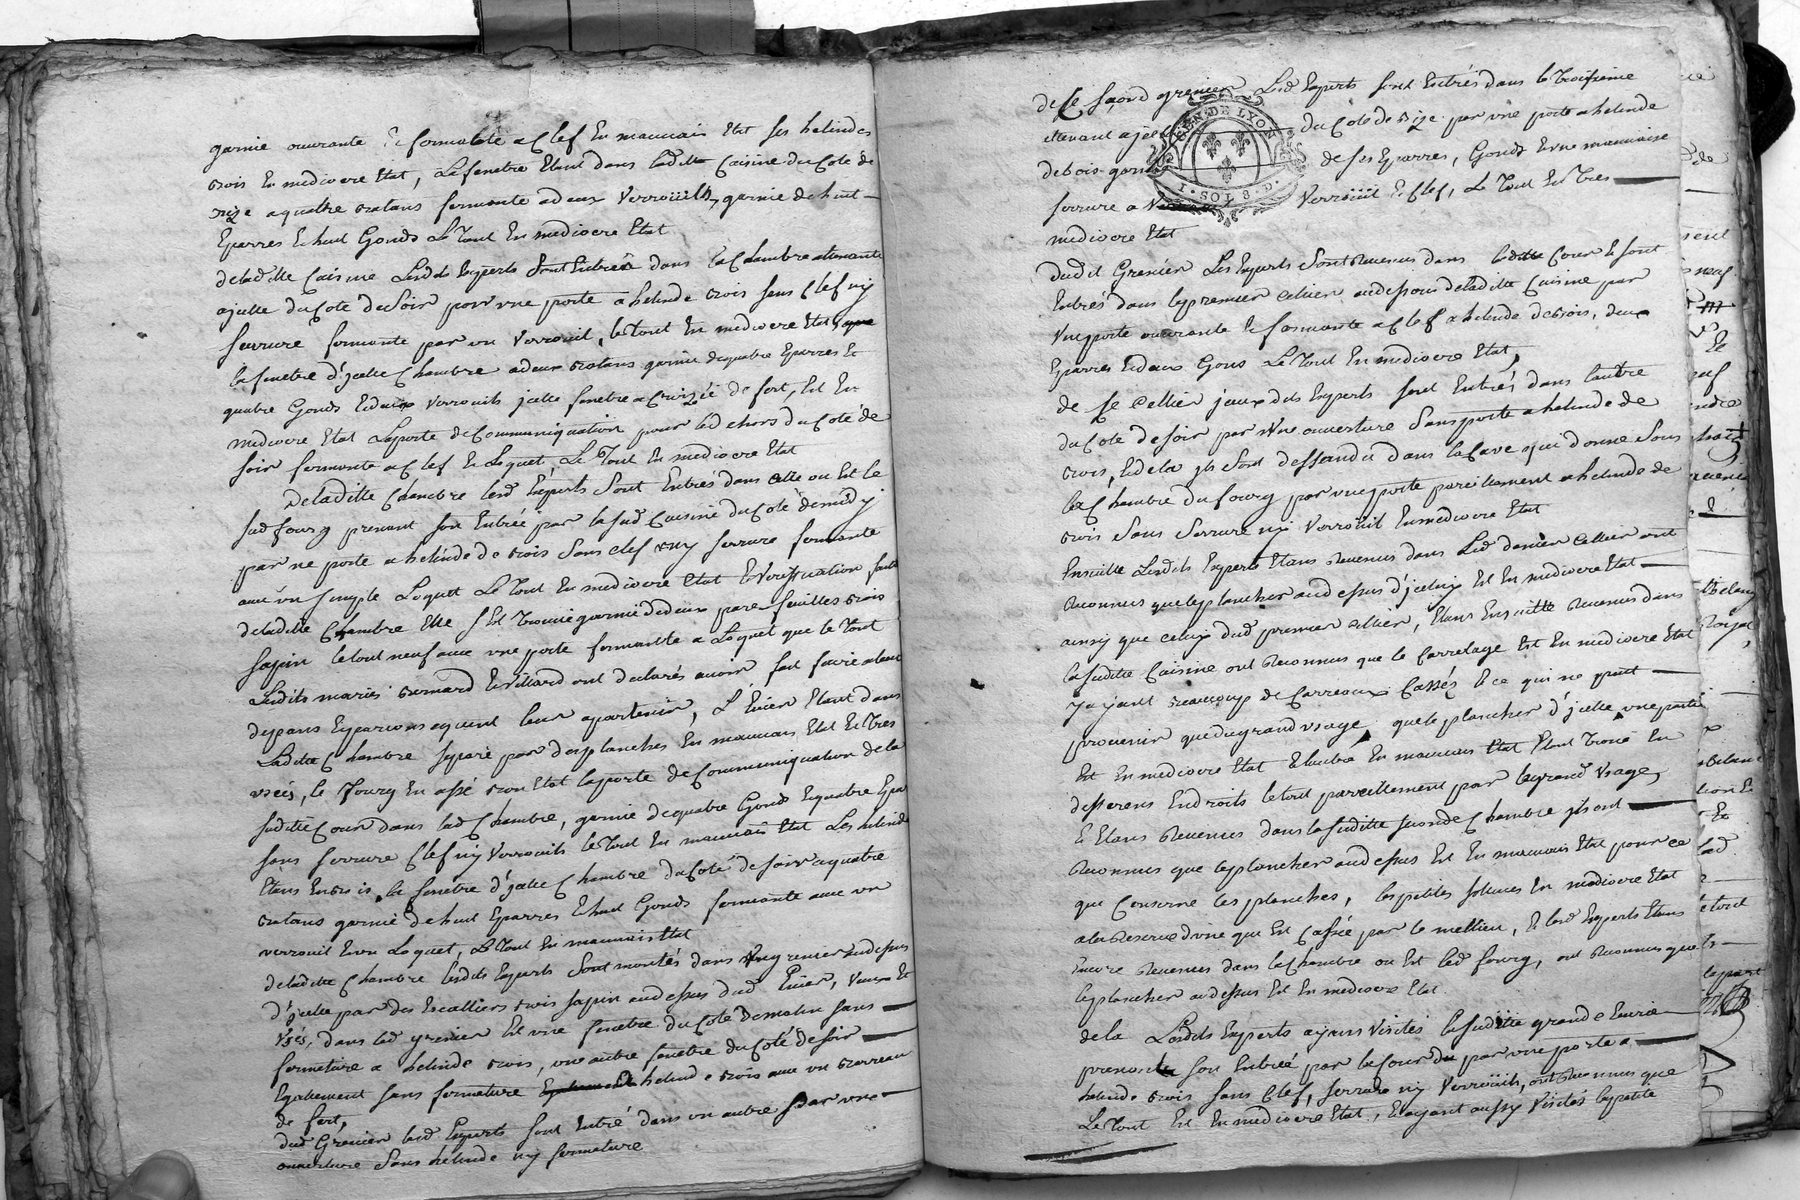 garnie ouvrante & fermante a Clef En mauvais Etat ses helindes
Bois En mediocre Etat, La fenetre Etant dans laditte Cuisine du Cote de
Bize a quatre Batans fermante a deux Verroüills, garnie de huit
Eparres & huit Gonds Le Tout En mediocre Etat
deladitte Cuisine Lesdits Experts sont Entrés dans la Chambre attenante
ajcelle du Cote du soir par une porte a helinde Bois sans Clef ny
serrure fermante par un Verroüil, le tout En mediocre Etat,
la fenetre d'jcelle Chambre a deux Batans garnie de quatre Eparres Et
quatre Gonds & deux Verroüils jcelle fenetre a Croizée de fert, Est En
mediocre Etat La porte de Communiquation pour le dehors du Coté de
soir fermante a Clef & Loquet, Le Tout En mediocre Etat
Deladitte Chambre lesd Experts sont Entrés dans Celle ou Est le
sud fourg prenant son Entrée par la sud Cuisine du Cote de midy
par ne porte a helinde de Bois sans clef ny serrure fermante
avec un simple Loquet Le Tout En mediocre Etat & Veriffication faite
deladitte Chambre Elle s'Est Trouvé garnie de deux pare feuilles Bois
sapin le tout neuf avec une porte fermante a Loquet que le Tout
Lesdits mariés Bernard & Villard ont declarés avoir fait faire a leurs
depans & par Consequent leur apartenir, L'Evier Etant dans
Laditte Chambre separé par des planches En mauvais Etat & Tres
Uséés, le Fourg En assé Bon Etat la porte de Communiquation de la
suditte Cour dans lad Chambre, garnie de quatre Gonds & quatre Epar
sans serrure Clef ny Verroüils le Tout En mauvais Etat Les helinde
Etans En Bois, la fenetre d'jcelle Chambre du Coté de soir a quatre
Batans garnie de huit Eparres & huit Gonds fermante avec un
verroüil & un Loquet, Le Tout En mauvais Etat
deladitte Chambre lesdits Experts sont montés dans un grenier au dessus
d'jcelle par des Escalliers Bois sapin au dessus dud Evier, Vieux Et
Usés, dans led grenier Est une fenetre du Coté de matin sans
fermeture a helinde Bois, une autre fenetre du Coté de soir
Egalement sans fermeture helinde Bois avec un Barreau
de fert,
dud Grenier lesd Experts sont Entré dans un autre par une
ouverture sans helinde ny fermeture
de Ce second grenier Lesd Experts sont Entrés dans le Troisieme
attenant a jcel du Coté de Bize par une porte a helinde
de bois garni de ses Eparres, Gonds & une mauvaise
serrure a Verroüil & Clef, Le Tout En Tres
mediocre Etat
GEN DE LYON
1 · SOL 8 · D ·
Dudit Grenier Les Experts sont Revenus dans laditte Cour & sont
Entrés dans le premier Cellier au dessous deladitte Cuisine par
Une porte ouvrante & fermante a Clef a helinde de Bois, deux
Eparres & deux Gons Le Tout En mediocre Etat,
de Ce Cellier jceux dits Experts sont Entrés dans l'autre
du Coté de soir par Une ouverture sans porte a helinde de
Bois, & de la jls sont dessandu dans la Cave qui donne sous
la Chambre du fourg par une porte pareillement a helinde de
Bois sans serrure ny Verroüil En mediocre Etat
Ensuitte Lesdits Experts Etans Revenus dans Led dernier Cellier ont
Reconnus que le plancher au dessus d'jceluy Est En mediocre Etat
ainsy que celuy dud premier Cellier, Etans Ensuitte Revenus dans
la suditte Cuisine ont Reconnus que le Carrelage Est En mediocre Etat
y ayant Beaucoup de Carreaux Cassés & ce qui ne peut
provenir que du grand usage, que le plancher d'jcelle une partie
Est En mediocre Etat & l'autre En mauvais Etat Etant Troué En
differens Endroits le tout pareillement par le grand Usage,
& Etans Revenus dans la suditte seconde Chambre jls ont
Reconnus que le plancher au dessus Est En mauvais Etat pour ce
que Conserne les planches, les petites sollives En mediocre Etat
a la Reserve d'une qui Est Cassée par le millieu, & lesd Experts Etans
Encore Revenus dans la Chambre ou Est led fourg, ont Reconnus que
le plancher au dessus Est En mediocre Etat
de la Lesdits Experts ayans Visités la suditte grande Ecurie
prenant son Entrée par la Cour par une porte a
helinde Bois sans Clef, serrure ny Verroüils, ont Reconnus que
Le Tout Est En mediocre Etat, & ayant aussy Visités la petite